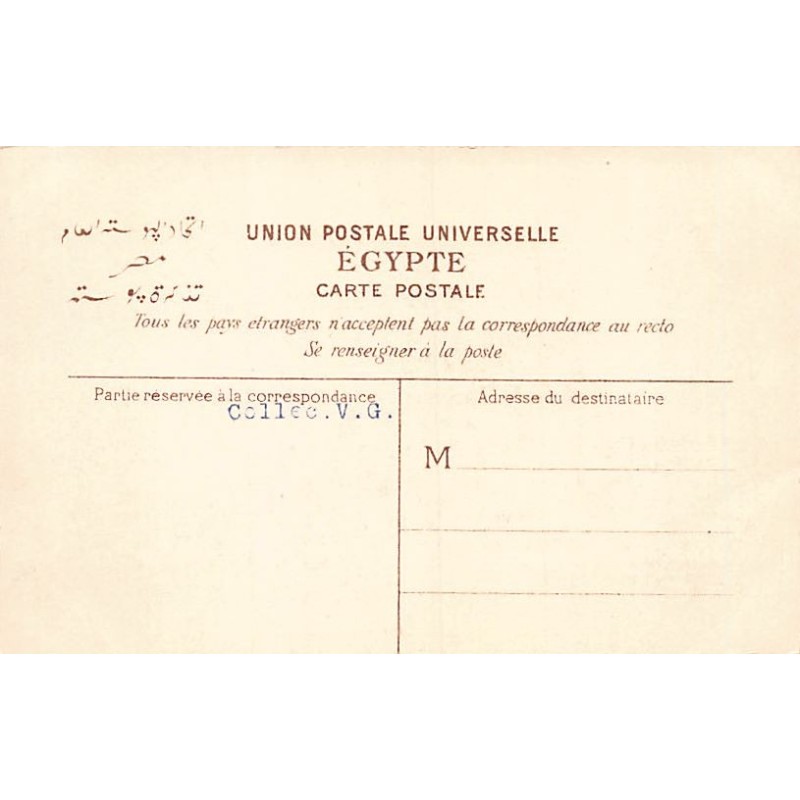 اتحاد البوسته العام
مصر
تذكرة بوسته
UNION POSTALE UNIVERSELLE
ÉGYPTE
CARTE POSTALE
Tous les pays etrangers n'acceptent pas la correspondance au recto
Se renseigner à la poste
Partie réservée à la correspondance
Collec.V.G.
Adresse du destinataire
M